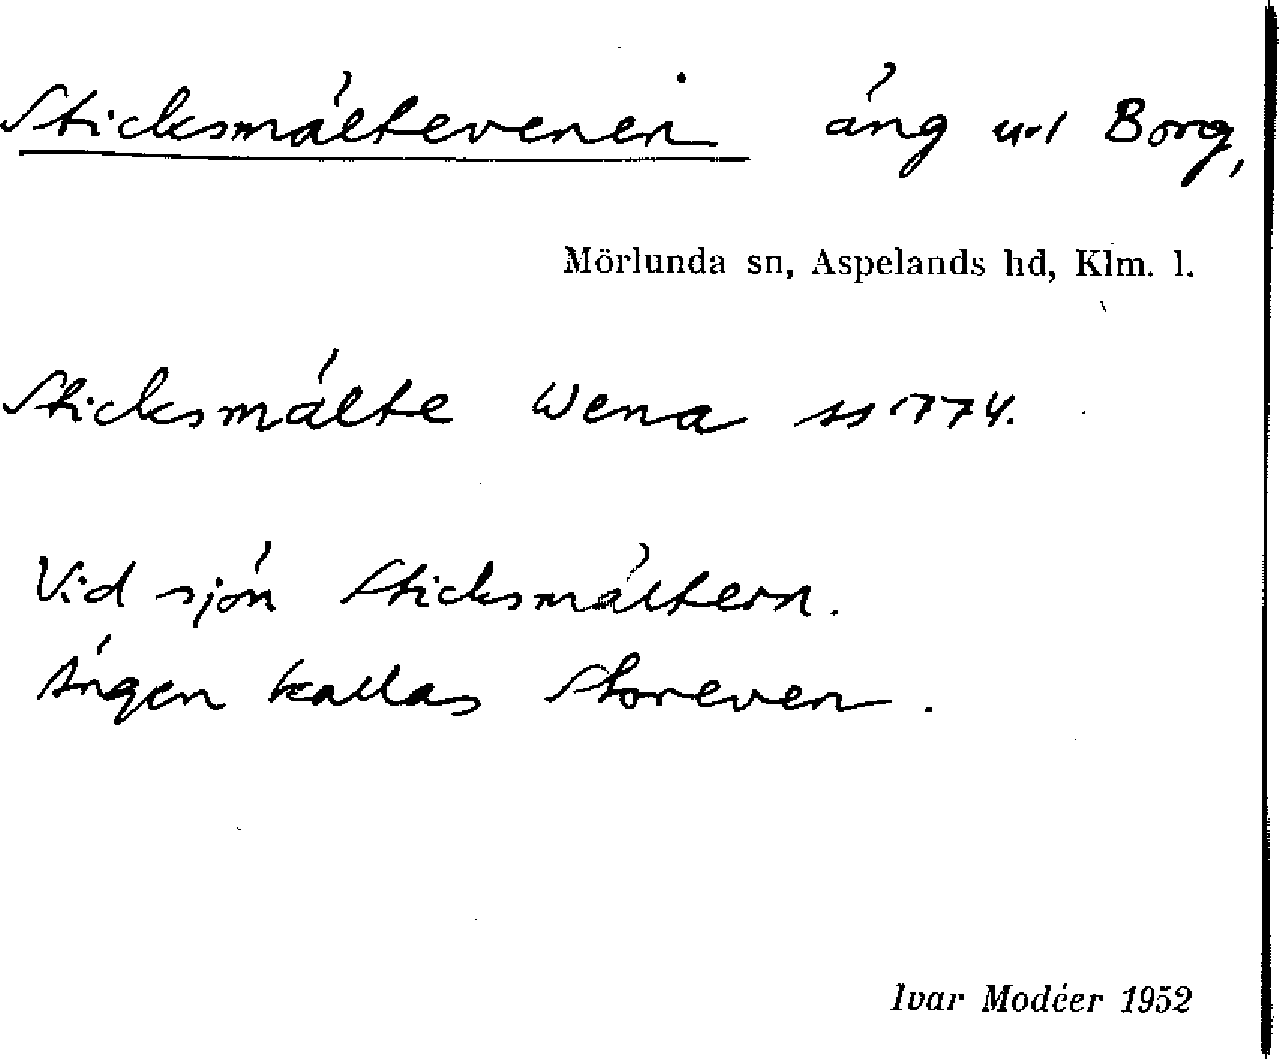 Sticksmältevenen äng u. Borg,
Mörlunda sn, Aspelands hd, Klm. l.
Sticksmälte Wena ss 1774.
Vid sjön Sticksmältern.
Ängen kallas Storeven.
Ivar Modéer 1952